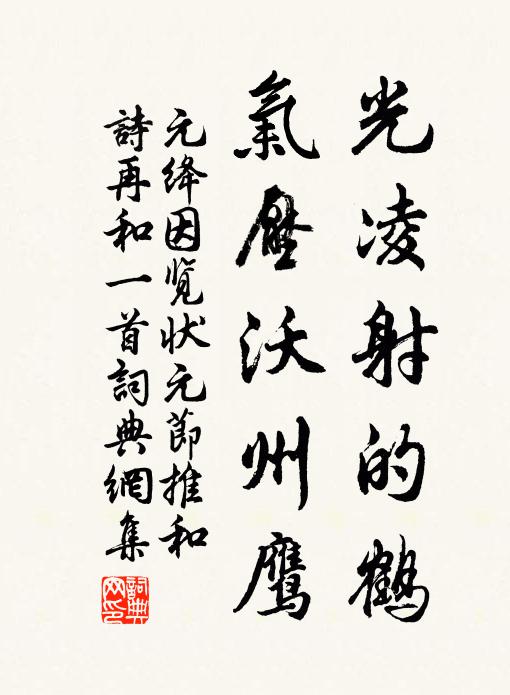 光凌射的鶴
氣壓沃州鷹
元绛因覽状元節推和
詩再和一首詞典網集
詞典網印